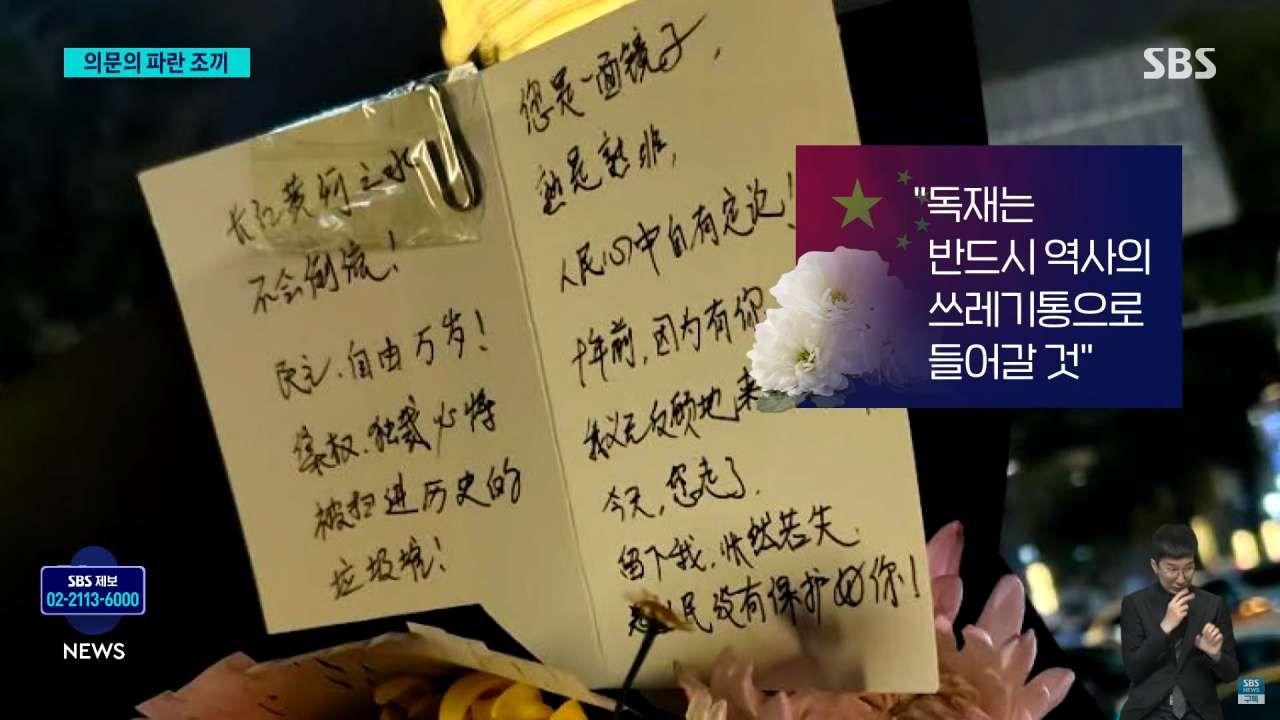 의문의 파란 조끼
SBS
长江黄河之水
不会倒流！
民主、自由万岁！
集权、独裁必将
被扫进历史的
垃圾堆！
您是一面镜子，
孰是孰非，
人民心中自有定论！
十年前，因为有你
我义无反顾地来
今天，您走了，
留下我，怅然若失
人民没有保护好你！
"독재는
반드시 역사의
쓰레기통으로
들어갈 것"
SBS 제보
02-2113-6000
NEWS
SBS
NEWS
구독